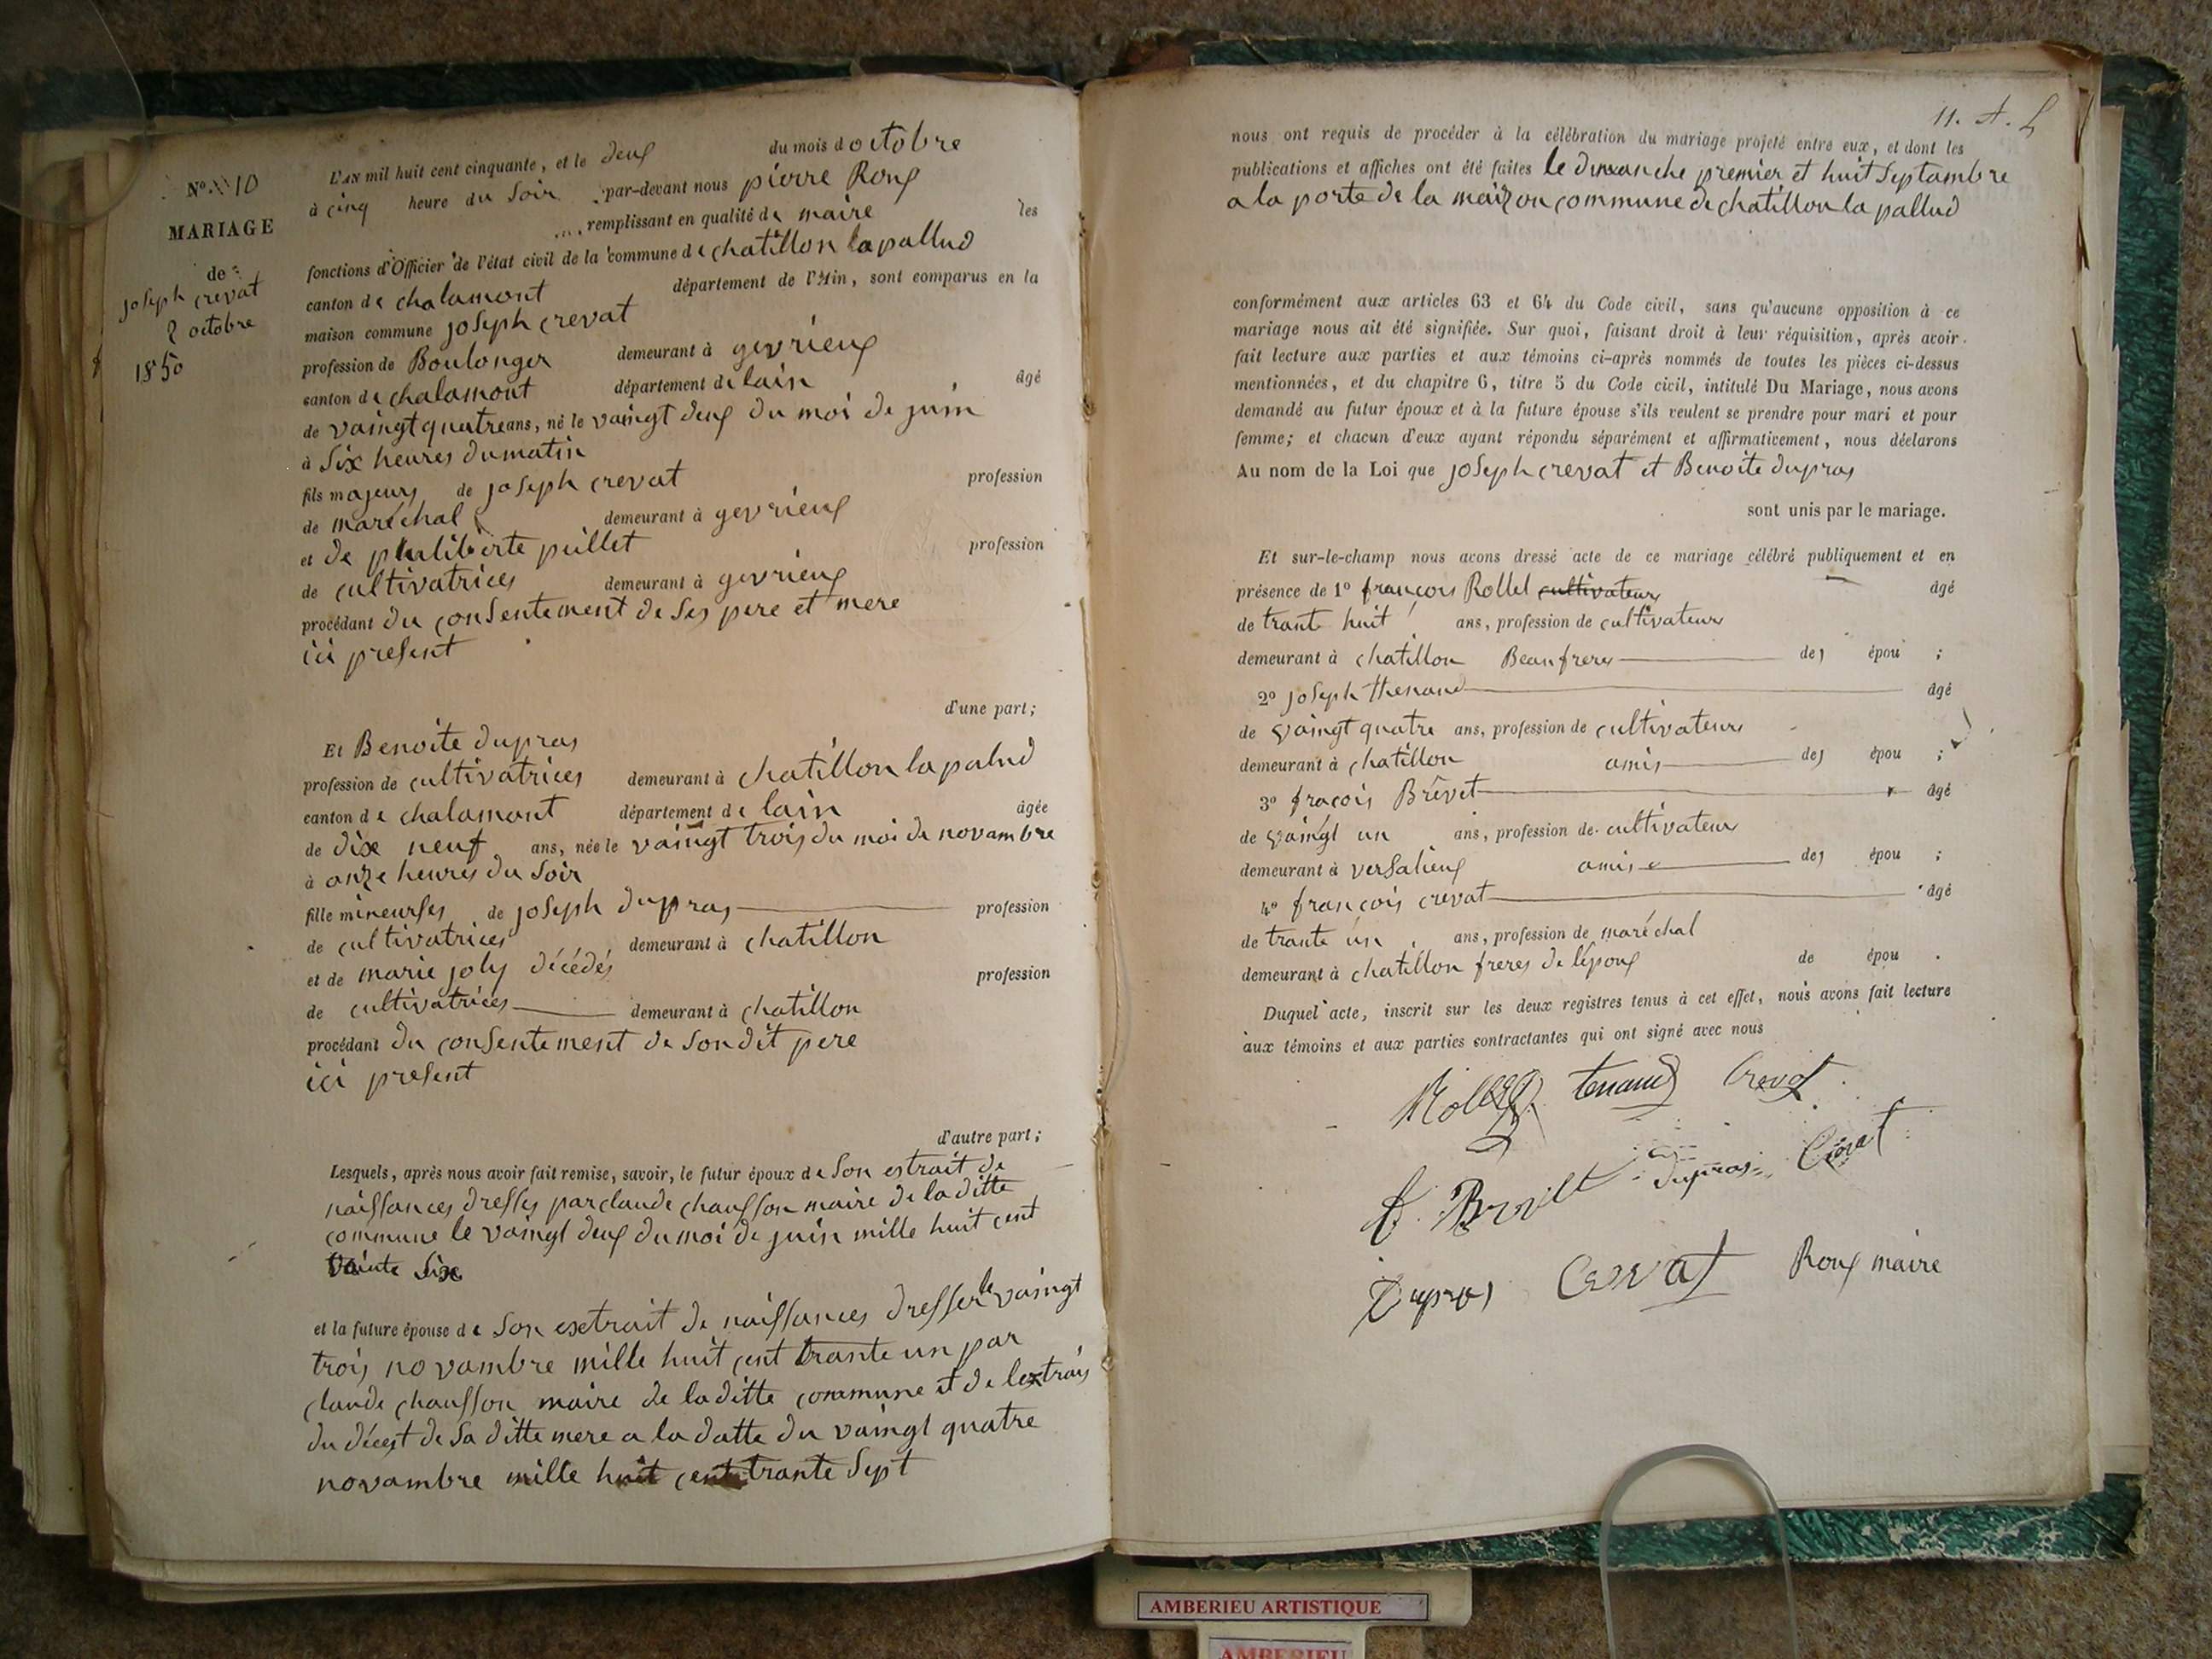 N° 10
MARIAGE
de
joseph crevat
2 octobre
1850
L'AN mil huit cent cinquante, et le deux du mois d octobre
à cinq heure du soir par-devant nous pierre Roux
remplissant en qualité de maire les
fonctions d'Officier de l'état civil de la commune de chatillon la pallud
canton de chalamont département de l'Ain, sont comparus en la
maison commune joseph crevat
profession de Boulonger demeurant à gevrieux
canton de chalamont département de lain âgé
de vaingt quatre ans, né le vaingt deux du moi de juin
à six heures du matin
fils majeurs de joseph crevat profession
de maréchal demeurant à gevrieux
et de philiberte peillet profession
de cultivatrices demeurant à gevrieux
procédant du consentement de ses pere et mere
ici present
d'une part;
Et Benoite dupras
profession de cultivatrices demeurant à chatillon la palud
canton de chalamont département de lain âgée
de dixe neuf ans, née le vaingt trois du moi de novambre
à onze heures du soir
fille mineurses de joseph dupras profession
de cultivatrices demeurant à chatillon
et de marie joly décédés profession
de cultivatrices demeurant à chatillon
procédant du consentement de sondit pere
ici present
d'autre part;
Lesquels, après nous avoir fait remise, savoir, le futur époux de son estrait de
naissances dresses par claude chausson maire de la ditte
commune le vaingt deux du moi de juin mille huit cent
vainte six
et la future épouse de son esxtrait de naissances dresser le vaingt
trois novambre mille huit cent trante un par
claude chausson maire de la ditte commune et de lextrais
du décest de sa ditte mere a la datte du vaingt quatre
novambre mille huit cent trante sept
11. A. L
nous ont requis de procéder à la célébration du mariage projeté entre eux, et dont les
publications et affiches ont été faites le dimanche premier et huit septambre
a la porte de la maizon commune de chatillon la pallud
conformément aux articles 63 et 64 du Code civil, sans qu'aucune opposition à ce
mariage nous ait été signifiée. Sur quoi, faisant droit à leur réquisition, après avoir
fait lecture aux parties et aux témoins ci-après nommés de toutes les pièces ci-dessus
mentionnées, et du chapitre 6, titre 5 du Code civil, intitulé Du Mariage, nous avons
demandé au futur époux et à la future épouse s'ils veulent se prendre pour mari et pour
femme; et chacun d'eux ayant répondu séparément et affirmativement, nous déclarons
Au nom de la Loi que joseph crevat et Benoite dupras
sont unis par le mariage.
Et sur-le-champ nous avons dressé acte de ce mariage célébré publiquement et en
présence de 1° françois Rollet cultivateurs âgé
de trante huit ans, profession de cultivateurs
demeurant à chatillon Beaufreres des épou ;
2° joseph thenand âgé
de vaingt quatre ans, profession de cultivateurs
demeurant à chatillon amis des épou ;
3° fraçois Brevet âgé
de vaingt un ans, profession de cultivateurs
demeurant à versalieux amis des épou ;
4° françois crevat âgé
de trante un ans, profession de maréchal
demeurant à chatillon freres de lépoux de épou .
Duquel acte, inscrit sur les deux registres tenus à cet effet, nous avons fait lecture
aux témoins et aux parties contractantes qui ont signé avec nous
tenand Crevat
dupras Crevat
Dupras Crevat Roux maire
AMBERIEU ARTISTIQUE
AMBERIEU